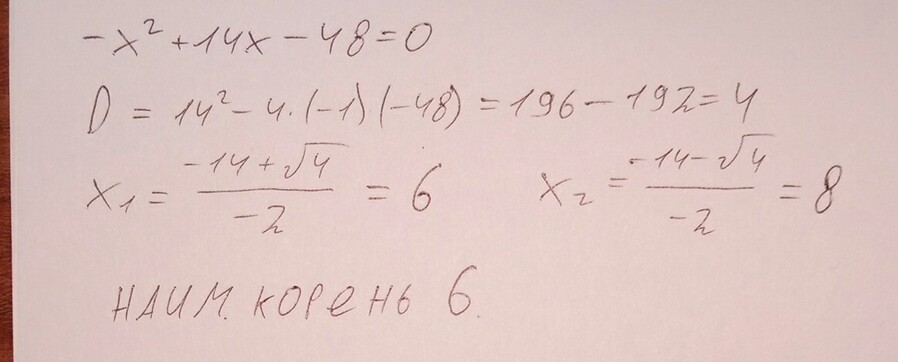 -x² + 14x - 48 = 0
D = 14² - 4·(-1)(-48) = 196 - 192 = 4
x₁ = (-14 + √4)/(-2) = 6    x₂ = (-14 - √4)/(-2) = 8
НАИМ. КОРЕНЬ 6.